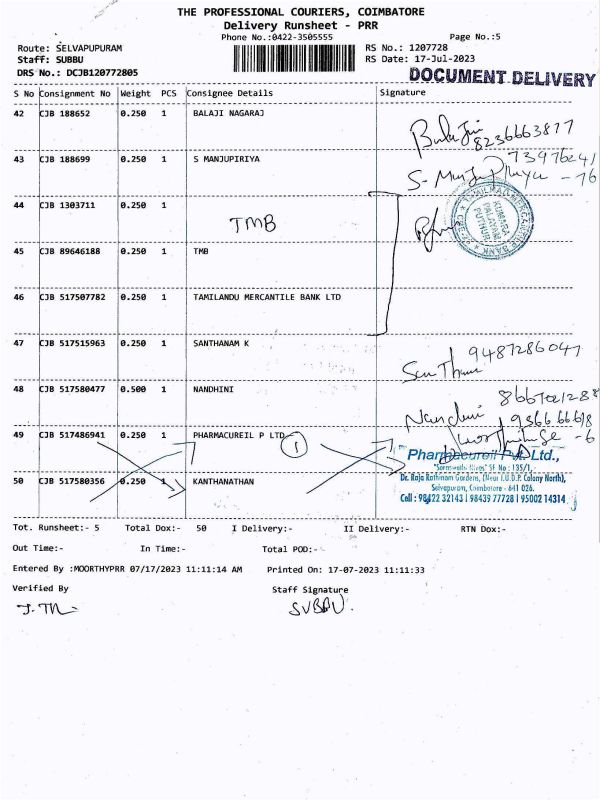 THE PROFESSIONAL COURIERS, COIMBATORE
Delivery Runsheet - PRR
Phone No.:0422-3505555 Page No.:5
Route: SELVAPUPURAM RS No.: 1207728
Staff: SUBBU RS Date: 17-Jul-2023
DRS No.: DCJB120772805 DOCUMENT DELIVERY
S No Consignment No Weight PCS Consignee Details Signature
42 CJB 188652 0.250 1 BALAJI NAGARAJ
Balaji 8236663877
43 CJB 188699 0.250 1 S MANJUPIRIYA
S- 
44 CJB 1303711 0.250 1
TMB
KUMARA PALAYAM PUTHUR
45 CJB 89646188 0.250 1 TMB
46 CJB 517507782 0.250 1 TAMILANDU MERCANTILE BANK LTD
47 CJB 517515963 0.250 1 SANTHANAM K
9487286047
48 CJB 517580477 0.500 1 NANDHINI
Nandini
49 CJB 517486941 0.250 1 PHARMACUREIL P LTD 1
Pharmacureil P.V. Ltd.,
50 CJB 517580356 0.250 1 KANTHANATHAN
Dr. Raja Rathinam Gardens, (Near I.U.D.P. Colony North),
Selvapuram, Coimbatore - 641 026.
Cell : 98422 32143 | 98439 77728 | 95002 14314
Tot. Runsheet:- 5 Total Dox:- 50 I Delivery:- II Delivery:- RTN Dox:-
Out Time:- In Time:- Total POD:-
Entered By :MOORTHYPRR 07/17/2023 11:11:14 AM Printed On: 17-07-2023 11:11:33
Verified By Staff Signature
SUBBU.